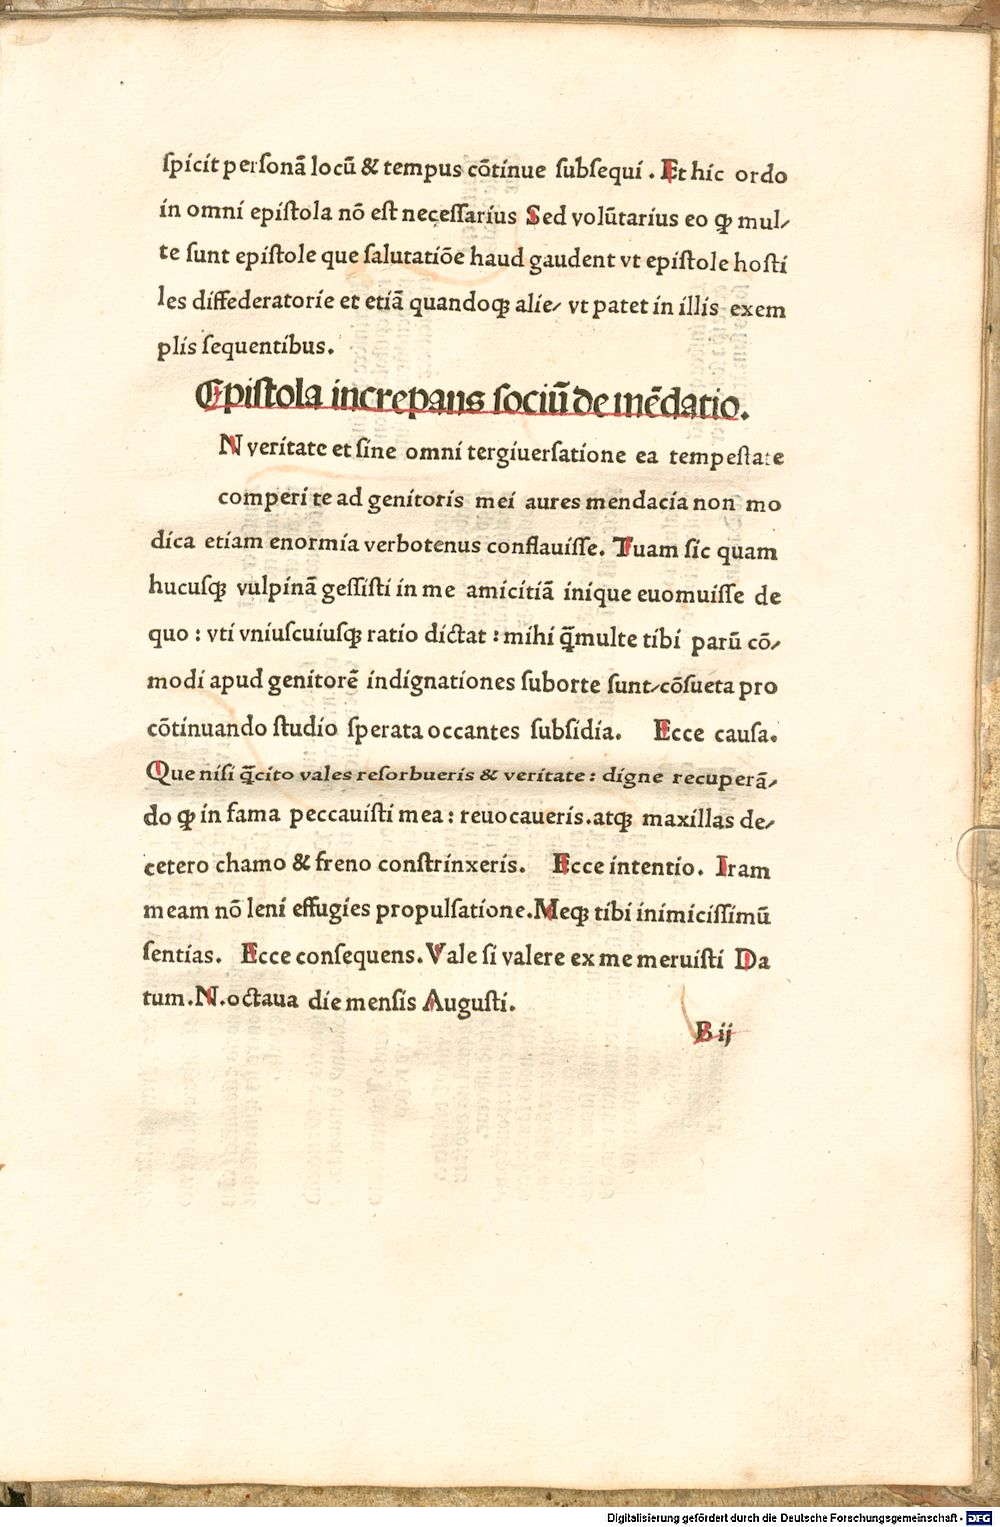 ſpicit perſonā locū & tempus cōtinue ſubſequi . Et hic ordo
in omni epiſtola nō eſt neceſſarius Sed volūtarius eo ꝙ mul⸗
te ſunt epiſtole que ſalutatiōe haud gaudent vt epiſtole hoſti
les diffederatorie et etiā quandoqꝫ alie/ vt patet in illis exem
plis ſequentibus.
Epiſtola increpans ſociū de mēdatio.
N veritate et ſine omni tergiuerſatione ea tempeſtate
comperi te ad genitoris mei aures mendacia non mo
dica etiam enormia verbotenus conflauiſſe. Tuam ſic quam
hucuſqꝫ vulpinā geſſiſti in me amicitiā inique euomuiſſe de
quo : vti vniuſcuiuſqꝫ ratio dictat : mihi q̄multe tibi parū cō⸗
modi apud genitorē indignationes ſuborte ſunt/cōſueta pro
cōtinuando ſtudio ſperata occantes ſubſidia. Ecce cauſa.
Que niſi q̄cito vales reſorbueris & veritate : digne recuperā⸗
do ꝙ in fama peccauiſti mea : reuocaueris.atqꝫ maxillas de⸗
cetero chamo & freno conſtrinxeris. Ecce intentio. Iram
meam nō leni effugies propulſatione.Meqꝫ tibi inimiciſſimū
ſentias. Ecce conſequens.Vale ſi valere ex me meruiſti Da
tum.N.octaua die menſis Auguſti.
B ij
Digitalisierung gefördert durch die Deutsche Forschungsgemeinschaft - DFG